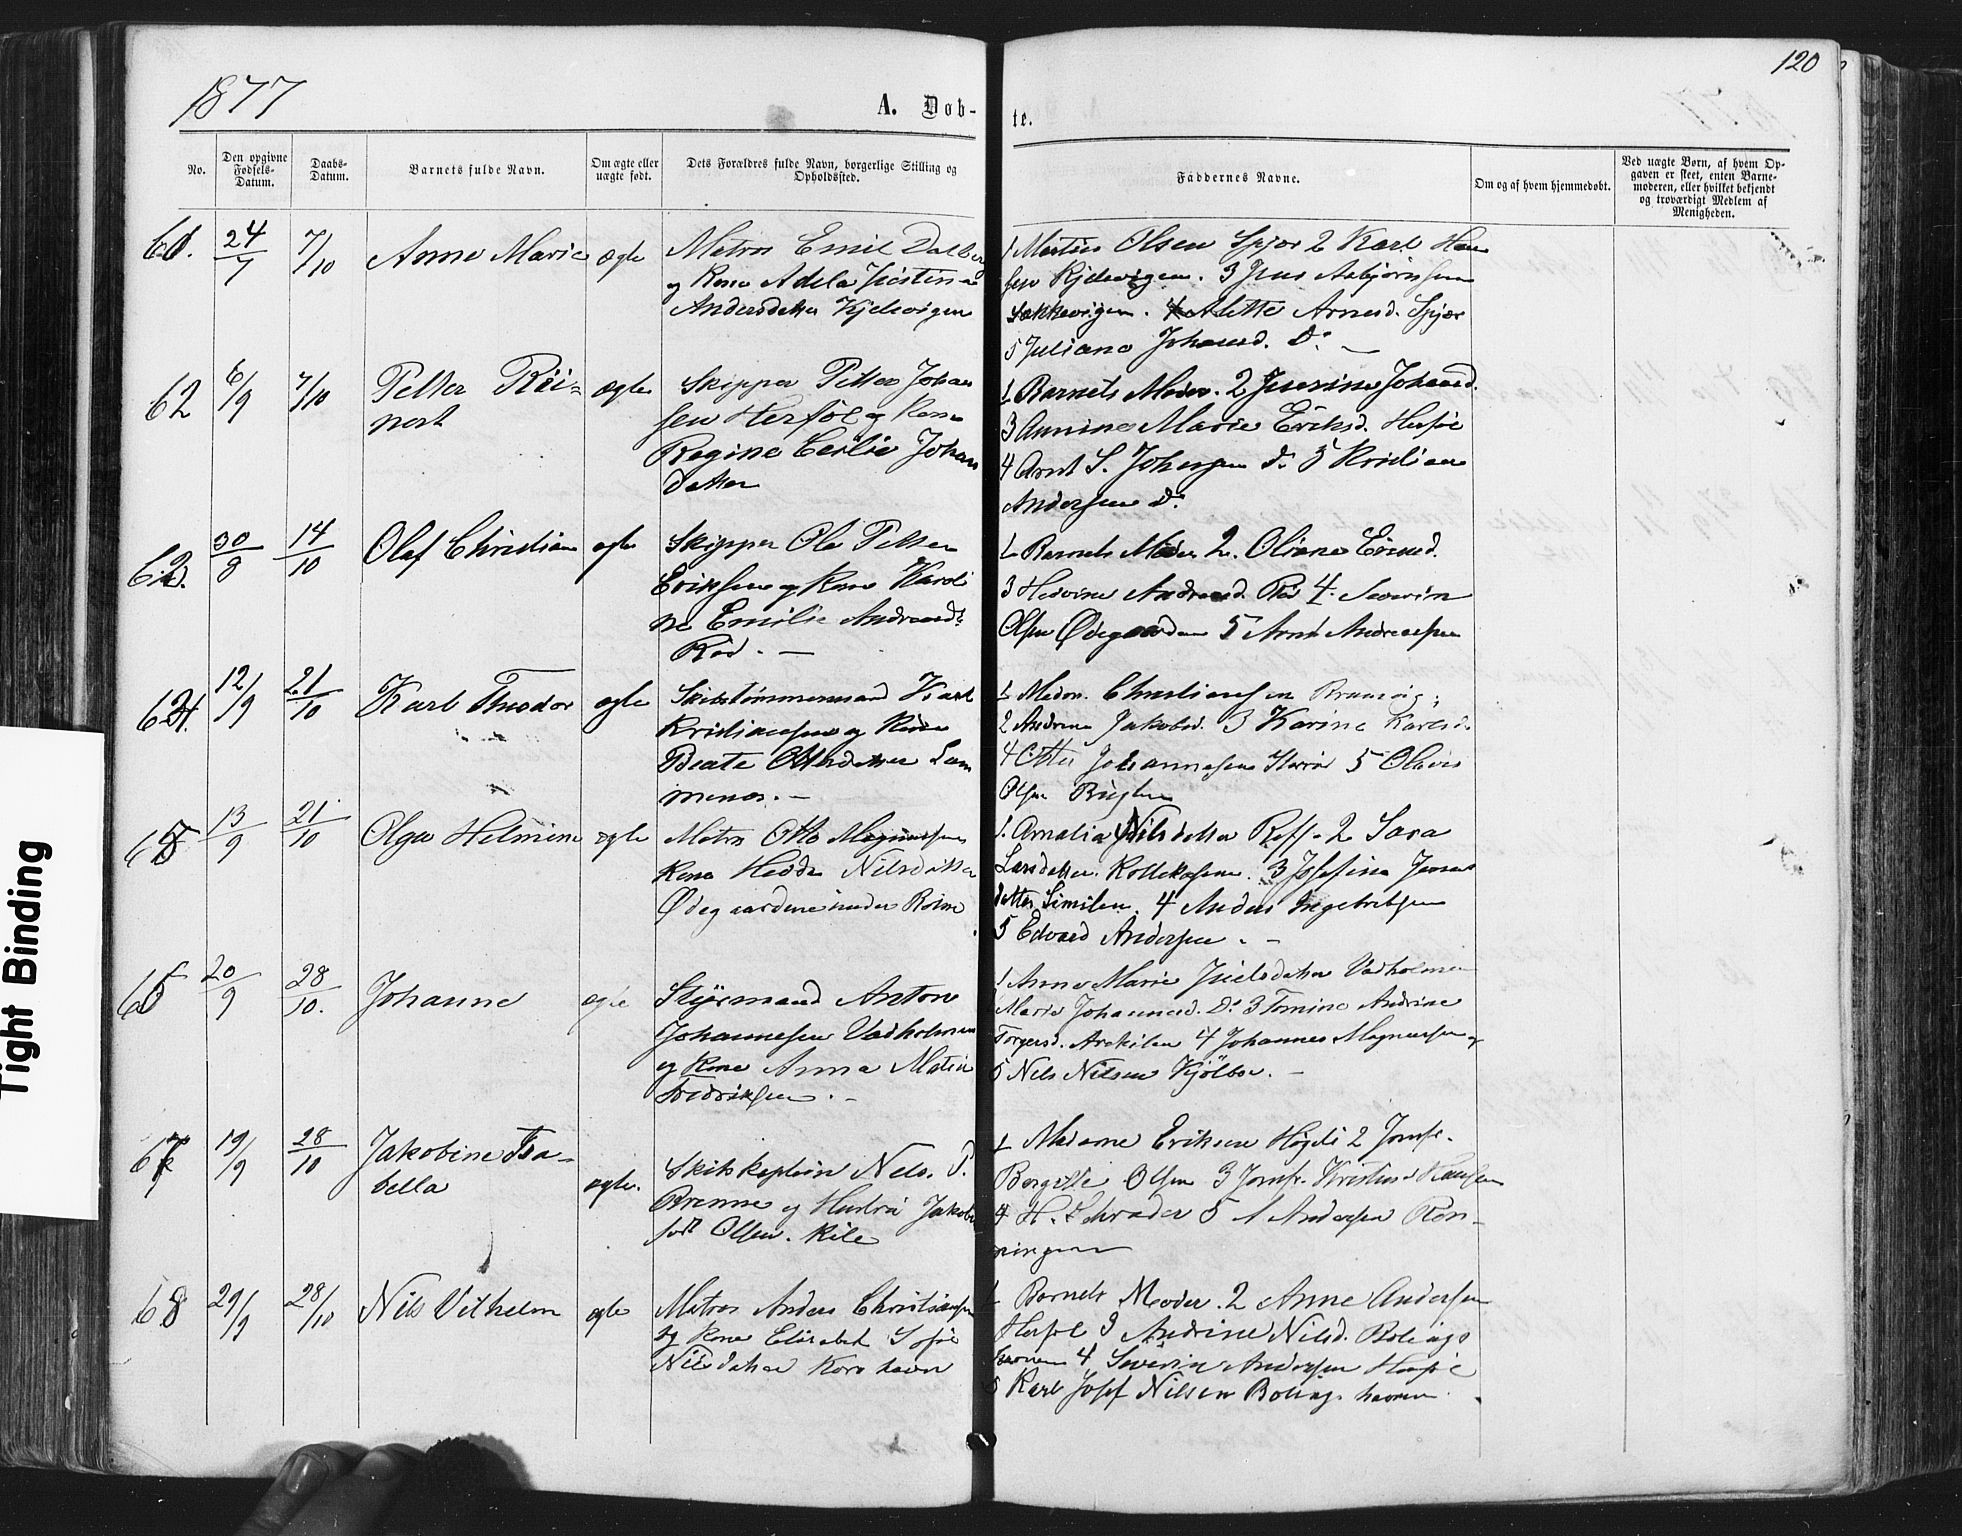 1877
A. Døb-
te.
120
No.
Den opgivne
Fødsels-
Datum.
Daabs-
Datum.
Barnets fulde Navn.
Om ægte eller
uægte født.
Dets Forældres fulde Navn, borgerlige Stilling og
Opholdssted.
Faddernes Navne.
Om og af hvem hjemmedøbt.
Ved uægte Børn, af hvem Op-
gaven er skeet, enten Barne-
moderen, eller hvilket bekjendt
og troværdigt Medlem af
Menigheden.
61. 24/7 7/10 Anne Marie ægte
Matros Emil Dalberg
og Kone Adela
Andersdatter Kjelvigen
1 Martin Olsen Spjær 2 Karl Han
sen Kjelvigen. 3 Jens Asbjørnsen
Løkkevigen. 4 Alette Arnesd. Spjær
5 Juliane Johansd. Do
62 6/9 7/10 Petter Rei-
nert
ægte
Skipper Petter Johan
sen Herføl og Kone
Regine Johans
datter
1 Barnets Moder. 2 Johansd.
3 Annine Marie Eriksd. Herføl
4 Arnt S. Johansen Do 5 Kristian
Andersen Do
63. 30/8 14/10 Olaf Christian ægte
Skipper Ole Petter
Eriksen og Kone Karoli
ne Emilie Andreasd.
Rød. -
1 Barnets Moder 2. Oliane
3 Andreasd. Rød 4. Severin
Olsen Ødegaarden 5 Arnt Andreassen
64. 12/9 21/10 Karl Theodor ægte
Skibstømmermand Karl
Kristiansen og Kone
Beate Ottersdatter
1 Madm. Christiansen
2 Andrea Jakobsd. 3 Karine Karlsd.
4 Otter Johannesen 5 Olavus
Olsen
65 13/9 21/10 Olga Helmine ægte
Matros Otto Magnussen
Kone Hedda Nilsdatter
Ødegaardene under
1. Amalia Nilsdatter Reff. 2 Sara
Larsdatter. 3 Josefine Jens
datter Similen. 4 Anders Ingebretsen
5 Edvard Andersen. -
66 20/9 28/10. Johanne ægte
Styrmand Anton
Johannesen Vadholmen
og Kone Anna Matia
Fredriksen. -
1 Anne Marie Nielsdatter Vadholmen
Marie Johannesd. Do 3 Tomine Andrine
Torgersd. Arekilen 4 Johannes Magnussen og
5 Nils Nilsen Kjølbo. -
67 19/9 28/10 Jakobine Isa-
bella
ægte.
Skibskaptein Nels. P.
Brenne og Hustru Jakobine
født Olsen. Kile
1 Madame Eriksen 2 Jomfr.
Borgitte Olsen 3 Jomfr. Kristine Hansen
4 H. Schrader 5 A Andersen Røn-
ningen
68 29/9 28/10 Nils Vilhelm ægte
Matros Anders Christiansen
og Kone Elisabet Sofie
Nilsdatter Korshavn
1 Barnets Moder. 2 Anne Andersen
Herføl 3 Andrine Nilsd. Bølings
havnen 4 Severin Andersen Herføl
5 Karl Josef Nilsen Bølingshavnen.
Tight Binding